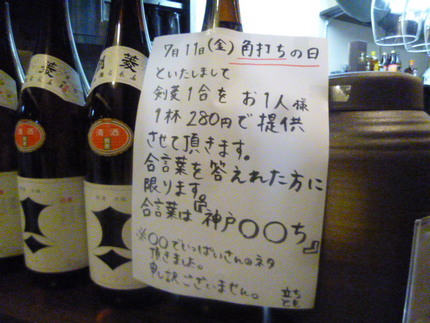 7月11日(金)角打ちの日
といたしまして
剣菱1合をお1人様
1杯280円で提供
させて頂きます。
合言葉を答えれた方に
限ります。
合言葉は『神戸〇〇ち』
※〇〇でいっぱいさんのネタ
頂きました。
申し訳ございません。
菱
清酒
菱
清酒